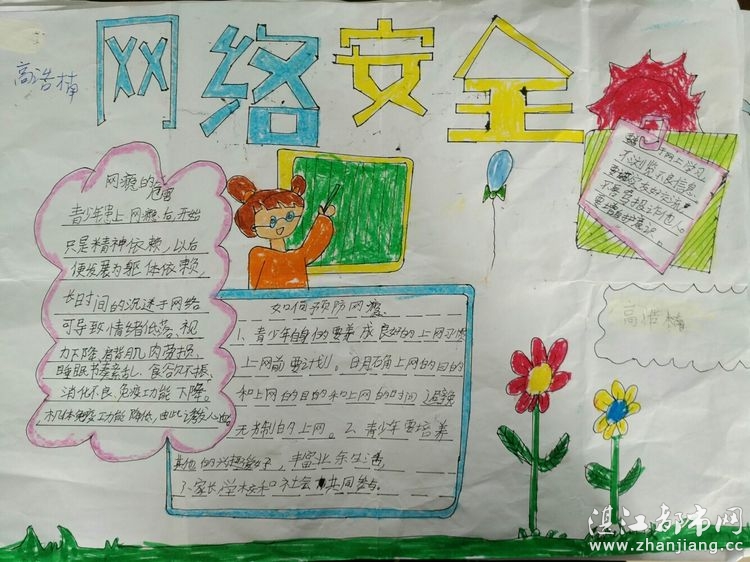 网络安全
高浩楠
网瘾的危害
青少年患上网瘾后,开始
只是精神依赖,以后
便发展为躯体依赖,
长时间的沉迷于网络
可导致情绪低落、视
力下降、肩背肌肉劳损、
睡眠节奏紊乱、食欲不振、
消化不良、免疫功能下降。
机体免疫功能降低,由此诱发心
如何预防网瘾
1、青少年自身的要养成良好的上网习惯
上网前要计划。明确上网的目的
和上网的目的和上网的时间 避免
无节制的上网。2、青少年要培养
其他的兴趣爱好,丰富业余生活
家长/学校和社会共同参与。
网上学习
不浏览不良信息
友好交流
高浩楠
湛江都市网
www.zhanjiang.cc